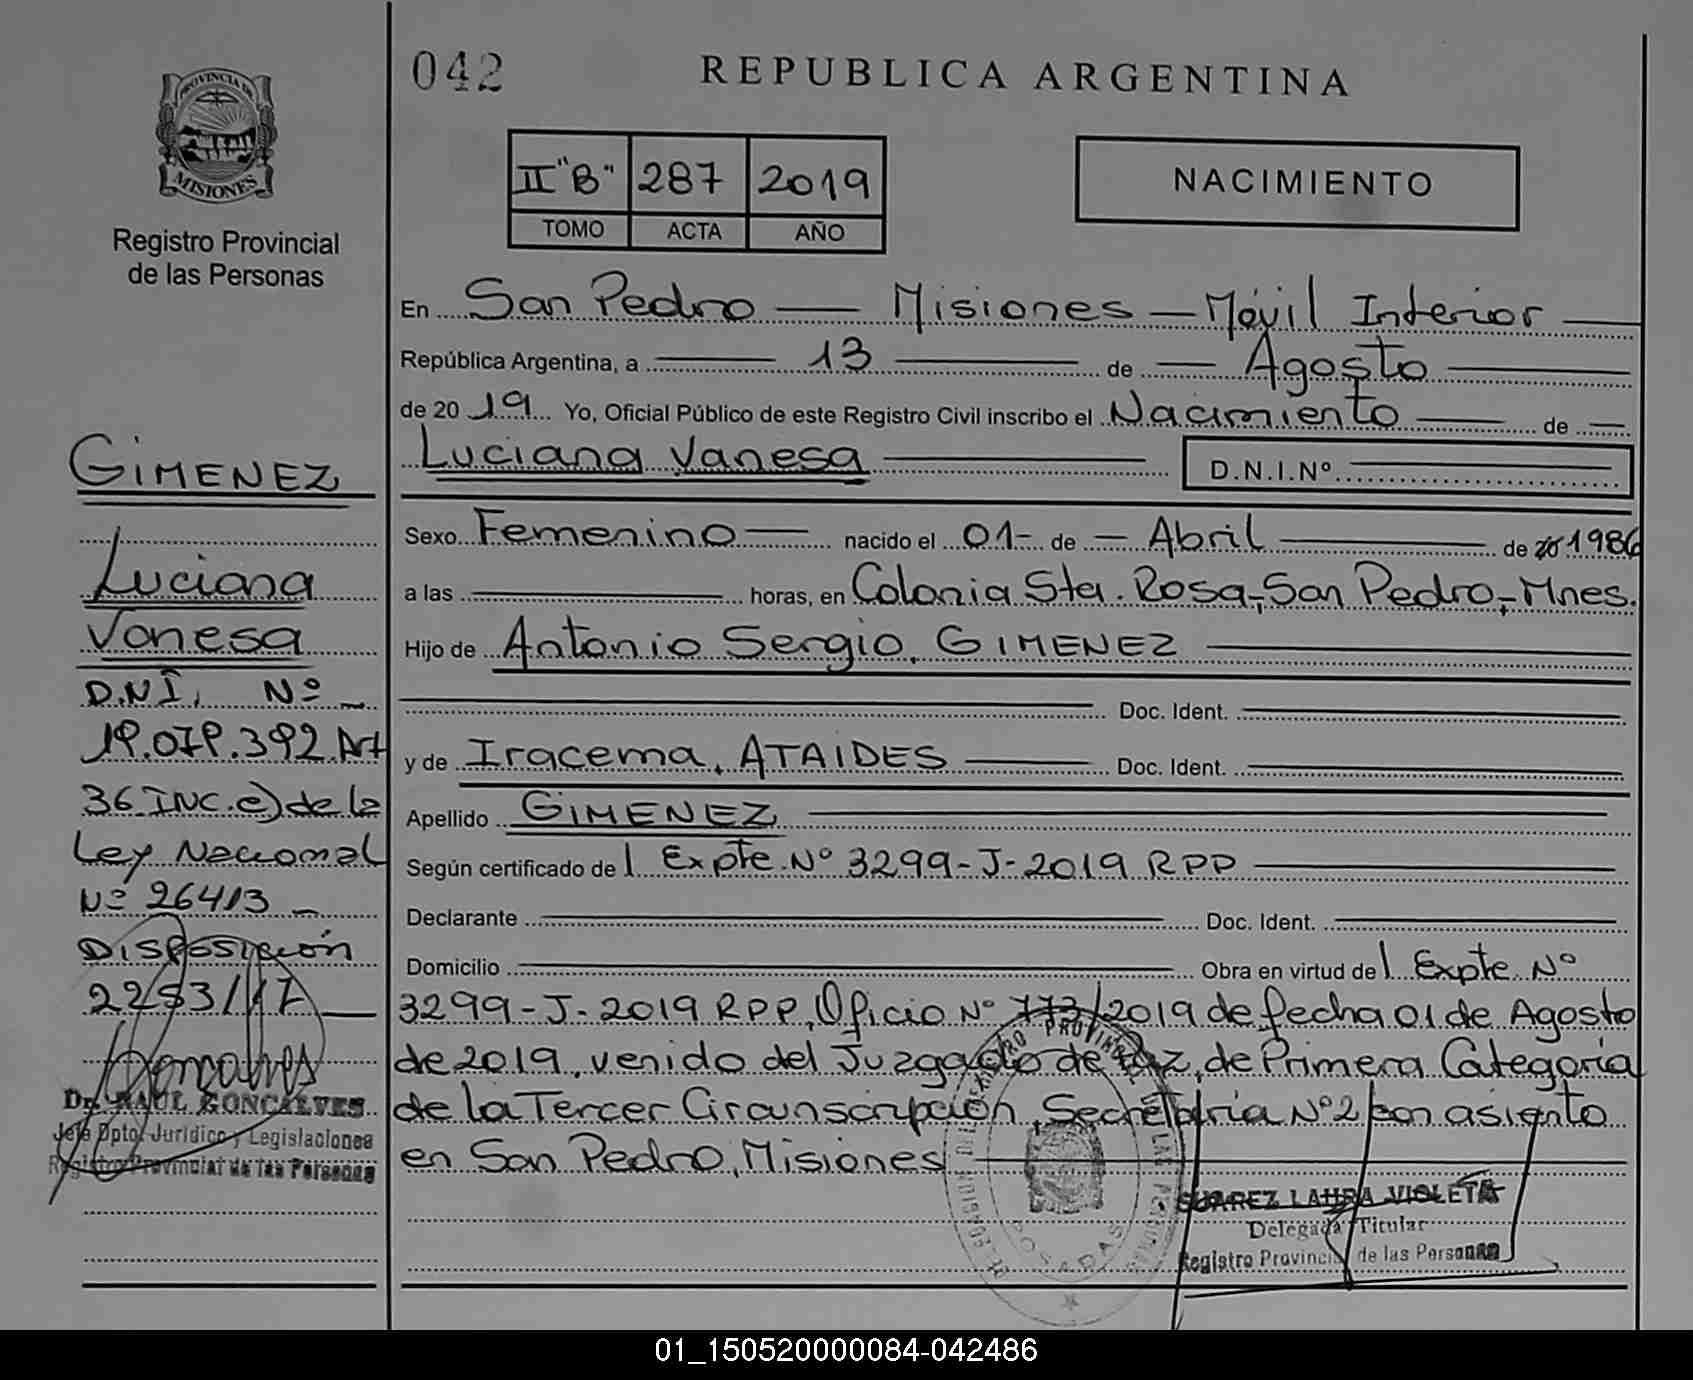 042
REPUBLICA ARGENTINA
PROVINCIA DE
MISIONES
Registro Provincial
de las Personas
II "B" 287 2019
TOMO ACTA AÑO
NACIMIENTO
En San Pedro — Misiones — Móvil Interior
República Argentina, a 13 de Agosto
de 2019 Yo, Oficial Público de este Registro Civil inscribo el Nacimiento de
Luciana Vanesa
D.N.I. Nº
Sexo Femenino nacido el 01 - de - Abril de 20 1986
a las horas, en Colonia Sta. Rosa, San Pedro, Mnes.
Hijo de Antonio Sergio, GIMENEZ
Doc. Ident.
y de Iracema, ATAIDES Doc. Ident.
Apellido GIMENEZ
Según certificado de l Expte. Nº 3299-J-2019 RPP
Declarante Doc. Ident.
Domicilio Obra en virtud de l Expte Nº
3299-J-2019 RPP, Oficio Nº 773/2019 de fecha 01 de Agosto
de 2019, venido del Juzgado de Paz, de Primera Categoría
de la Tercer Circunscripción, Secretaria Nº 2 con asiento
en San Pedro, Misiones
SUAREZ LAURA VIOLETA
Delegada Titular
Registro Provincial de las Personas
POSADAS
GIMENEZ
Luciana
Vanesa
D.N.I. Nº
19.079.392 Art
36 INC. e) de la
Ley Nacional
Nº 26413
DISPOSICIÓN
2253/17
Dr. RAUL GONCALVES
Jefe Dpto. Jurídico y Legislaciones
Registro Provincial de las Personas
01_150520000084-042486